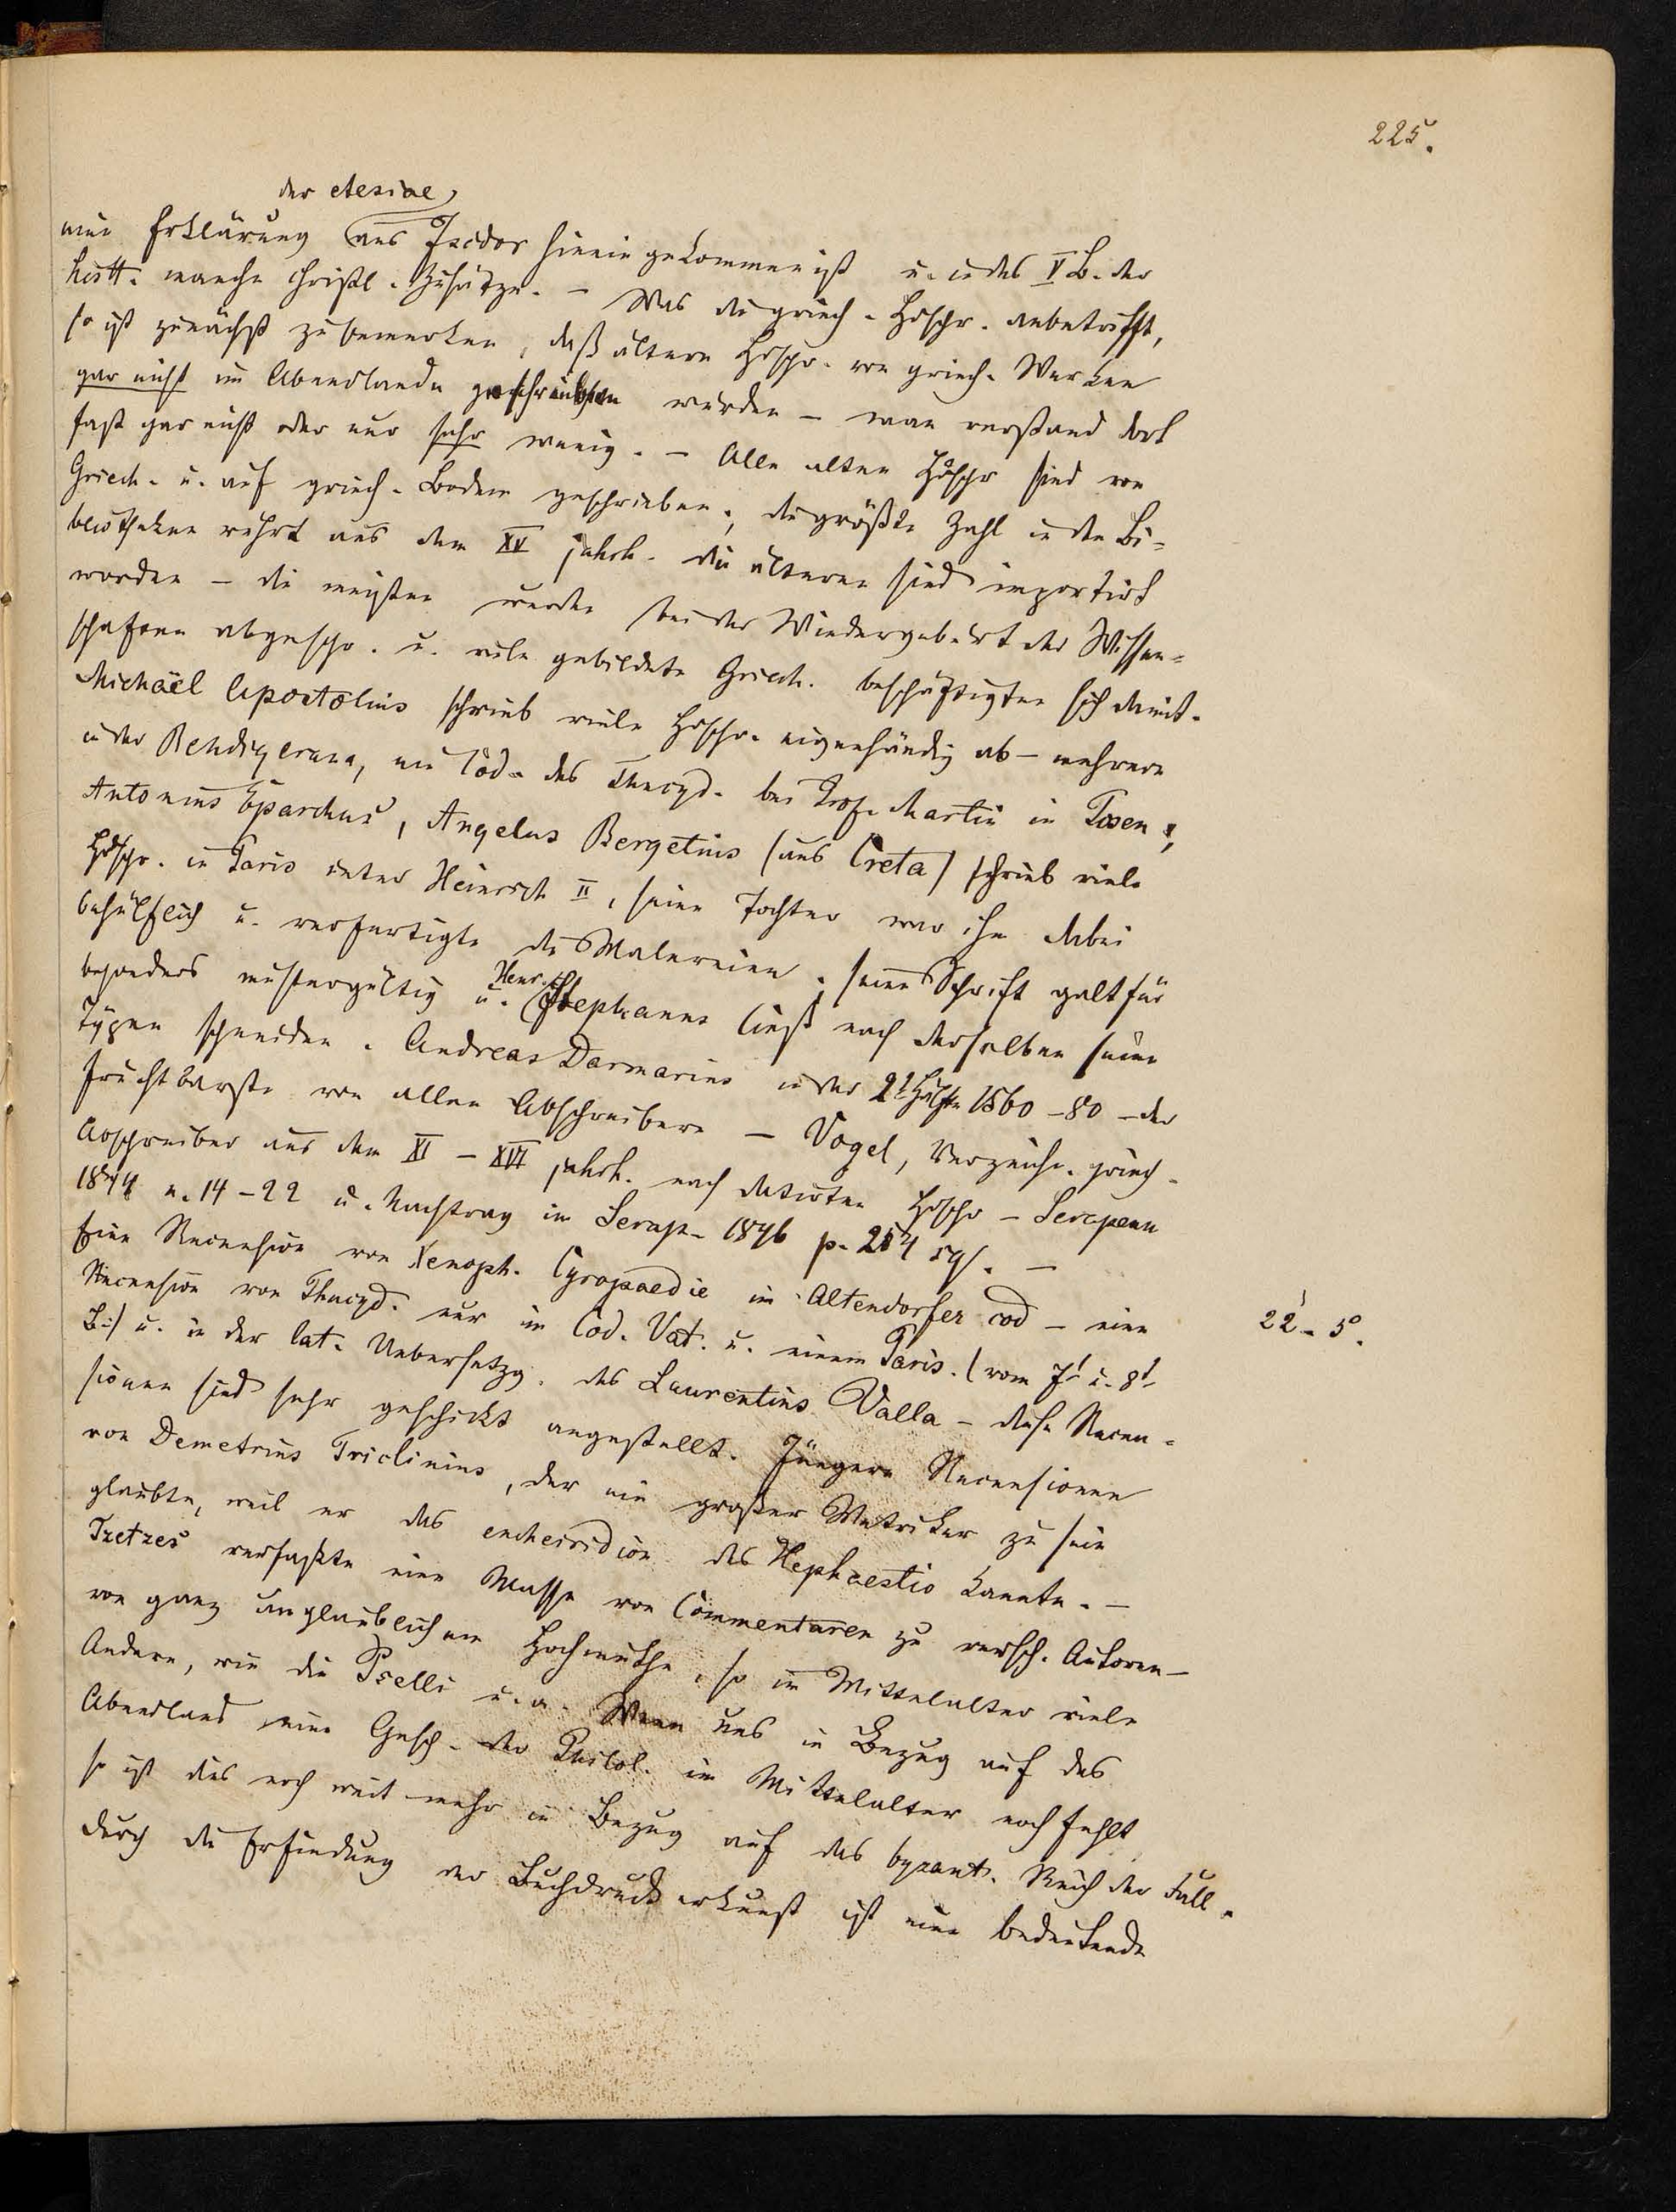 225.
der etesiae
eine Erklärung aus Isidor hineingekommen ist u. in das V B. der
histt. manche christl. Zusätze. – Was die griech. Hdschr. anbetrifft,
so ist zunächst zu bemerken, daß ältere Hdschr. von griech. Werken
gar nicht im Abendlande geschrieben wurden – man verstand dort
fast gar nicht oder nur sehr wenig. – Alle alten Hdschr sind von
Griech. u. auf griech. Boden geschrieben; die größte Zahl in den Bi-
bliotheken rührt aus dem XV jahrh. die älteren sind importirt
worden – die meisten wurden bei der Wiedergeburt der Wissen-
schaften abgeschr. u. viele gebildete Griech. beschäftigten sich damit.
Michaël Apostolius schrieb viele Hdschr. eigenhändig ab – mehrere
in der Rehdigerana, ein Cod. des Thucyd. bei Prof. Martin in Posen;
Antonius Eparchus, Angelus Bergetius (aus Creta) schrieb viele
Hdschr. in Paris unter Heinrich II, seine Tochter war ihm dabei
behülflich u. verfertigte die Malereien; seine Schrift galt für
besonders mustergültig u. Henr. Stephanus ließ nach derselben seine
Typen schneiden. Andreas Darmarius in der 2t Hälfte 1560–80 – der
fruchtbarste von allen Abschreibern – Vogel, Verzeichn. griech.
Abschreiber aus dem XI – XVI jahrh. nach datirten Hdschr – Serapeum
1844 n. 14–22 u. Nachtrag im Serap. 1846 p. 254 sqs. –
Eine Recension von Xenoph. Cyropaedie im Altendorfer cod – eine
22. 5.
Recension von Thucyd. nur im Cod. Vat. u. einem Paris. (vom 7t u. 8t
B.) u. in der lat. Uebersetzg. des Laurentius Valla – diese Recen-
sionen sind sehr geschickt angestellt. Jüngere Recensionen
von Demetrius Triclinius, der ein großer Metriker zu sein
glaubte, weil er das encheiridion des Hephaestio kannte. –
Tzetzes verfaßte eine Masse von Commentaren zu versch. Autoren –
von ganz unglaublichem Hochmuthe, so im Mittelalter viele
Andere, wie die Pselli u. a. Wenn uns in Bezug auf das
Abendland eine Gesch. der Philol. im Mittelalter noch fehlt
so ist dies noch weit mehr in Bezug auf das byzant. Reich der Fall.
Durch die Erfindung der Buchdruckerkunst ist eine bedeutende